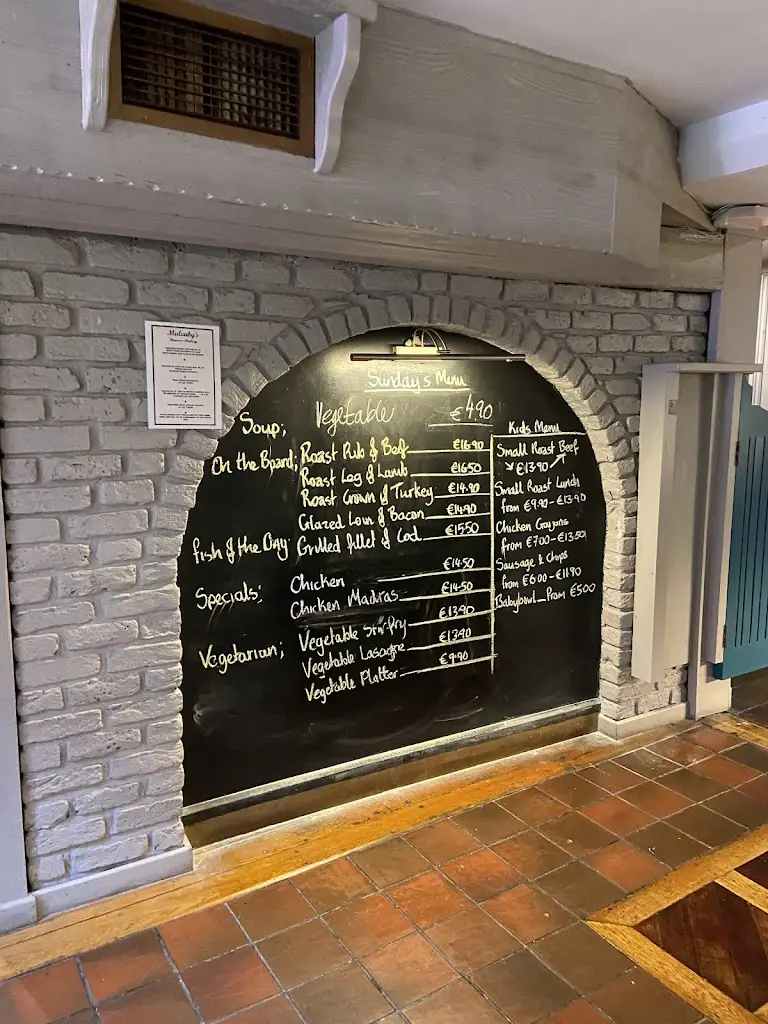 Mulcahy's
Sunday's Menu
Soup; Vegetable €4.90
On the Board; Roast Rib of Beef €16.90
Roast Leg of Lamb €16.50
Roast Crown of Turkey €14.90
Glazed Loin of Bacon €14.90
Fish of the Day: Grilled fillet of Cod €15.50
Specials; Chicken €14.50
Chicken Madras €14.50
Vegetarian; Vegetable Stir-fry €13.90
Vegetable Lasagne €13.90
Vegetable Platter €9.90
Kids Menu
Small Roast Beef
€13.90
Small Roast Lunch
from €9.90-€13.90
Chicken Goujons
from €7.00-€13.50
Sausage & Chips
from €6.00-€11.90
Babybowl - From €5.00